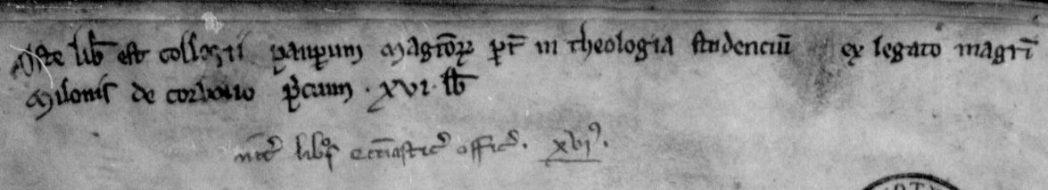 Iste lib̄ est collegii paup̱um magr̄oꝝ par̄ in theologia studenciū ex legato magrī
Milonis de corbolio p̱cium · xvi · lb̄
int̾ libros ecc̄iastic̾ offic̾. xvjꝰ.